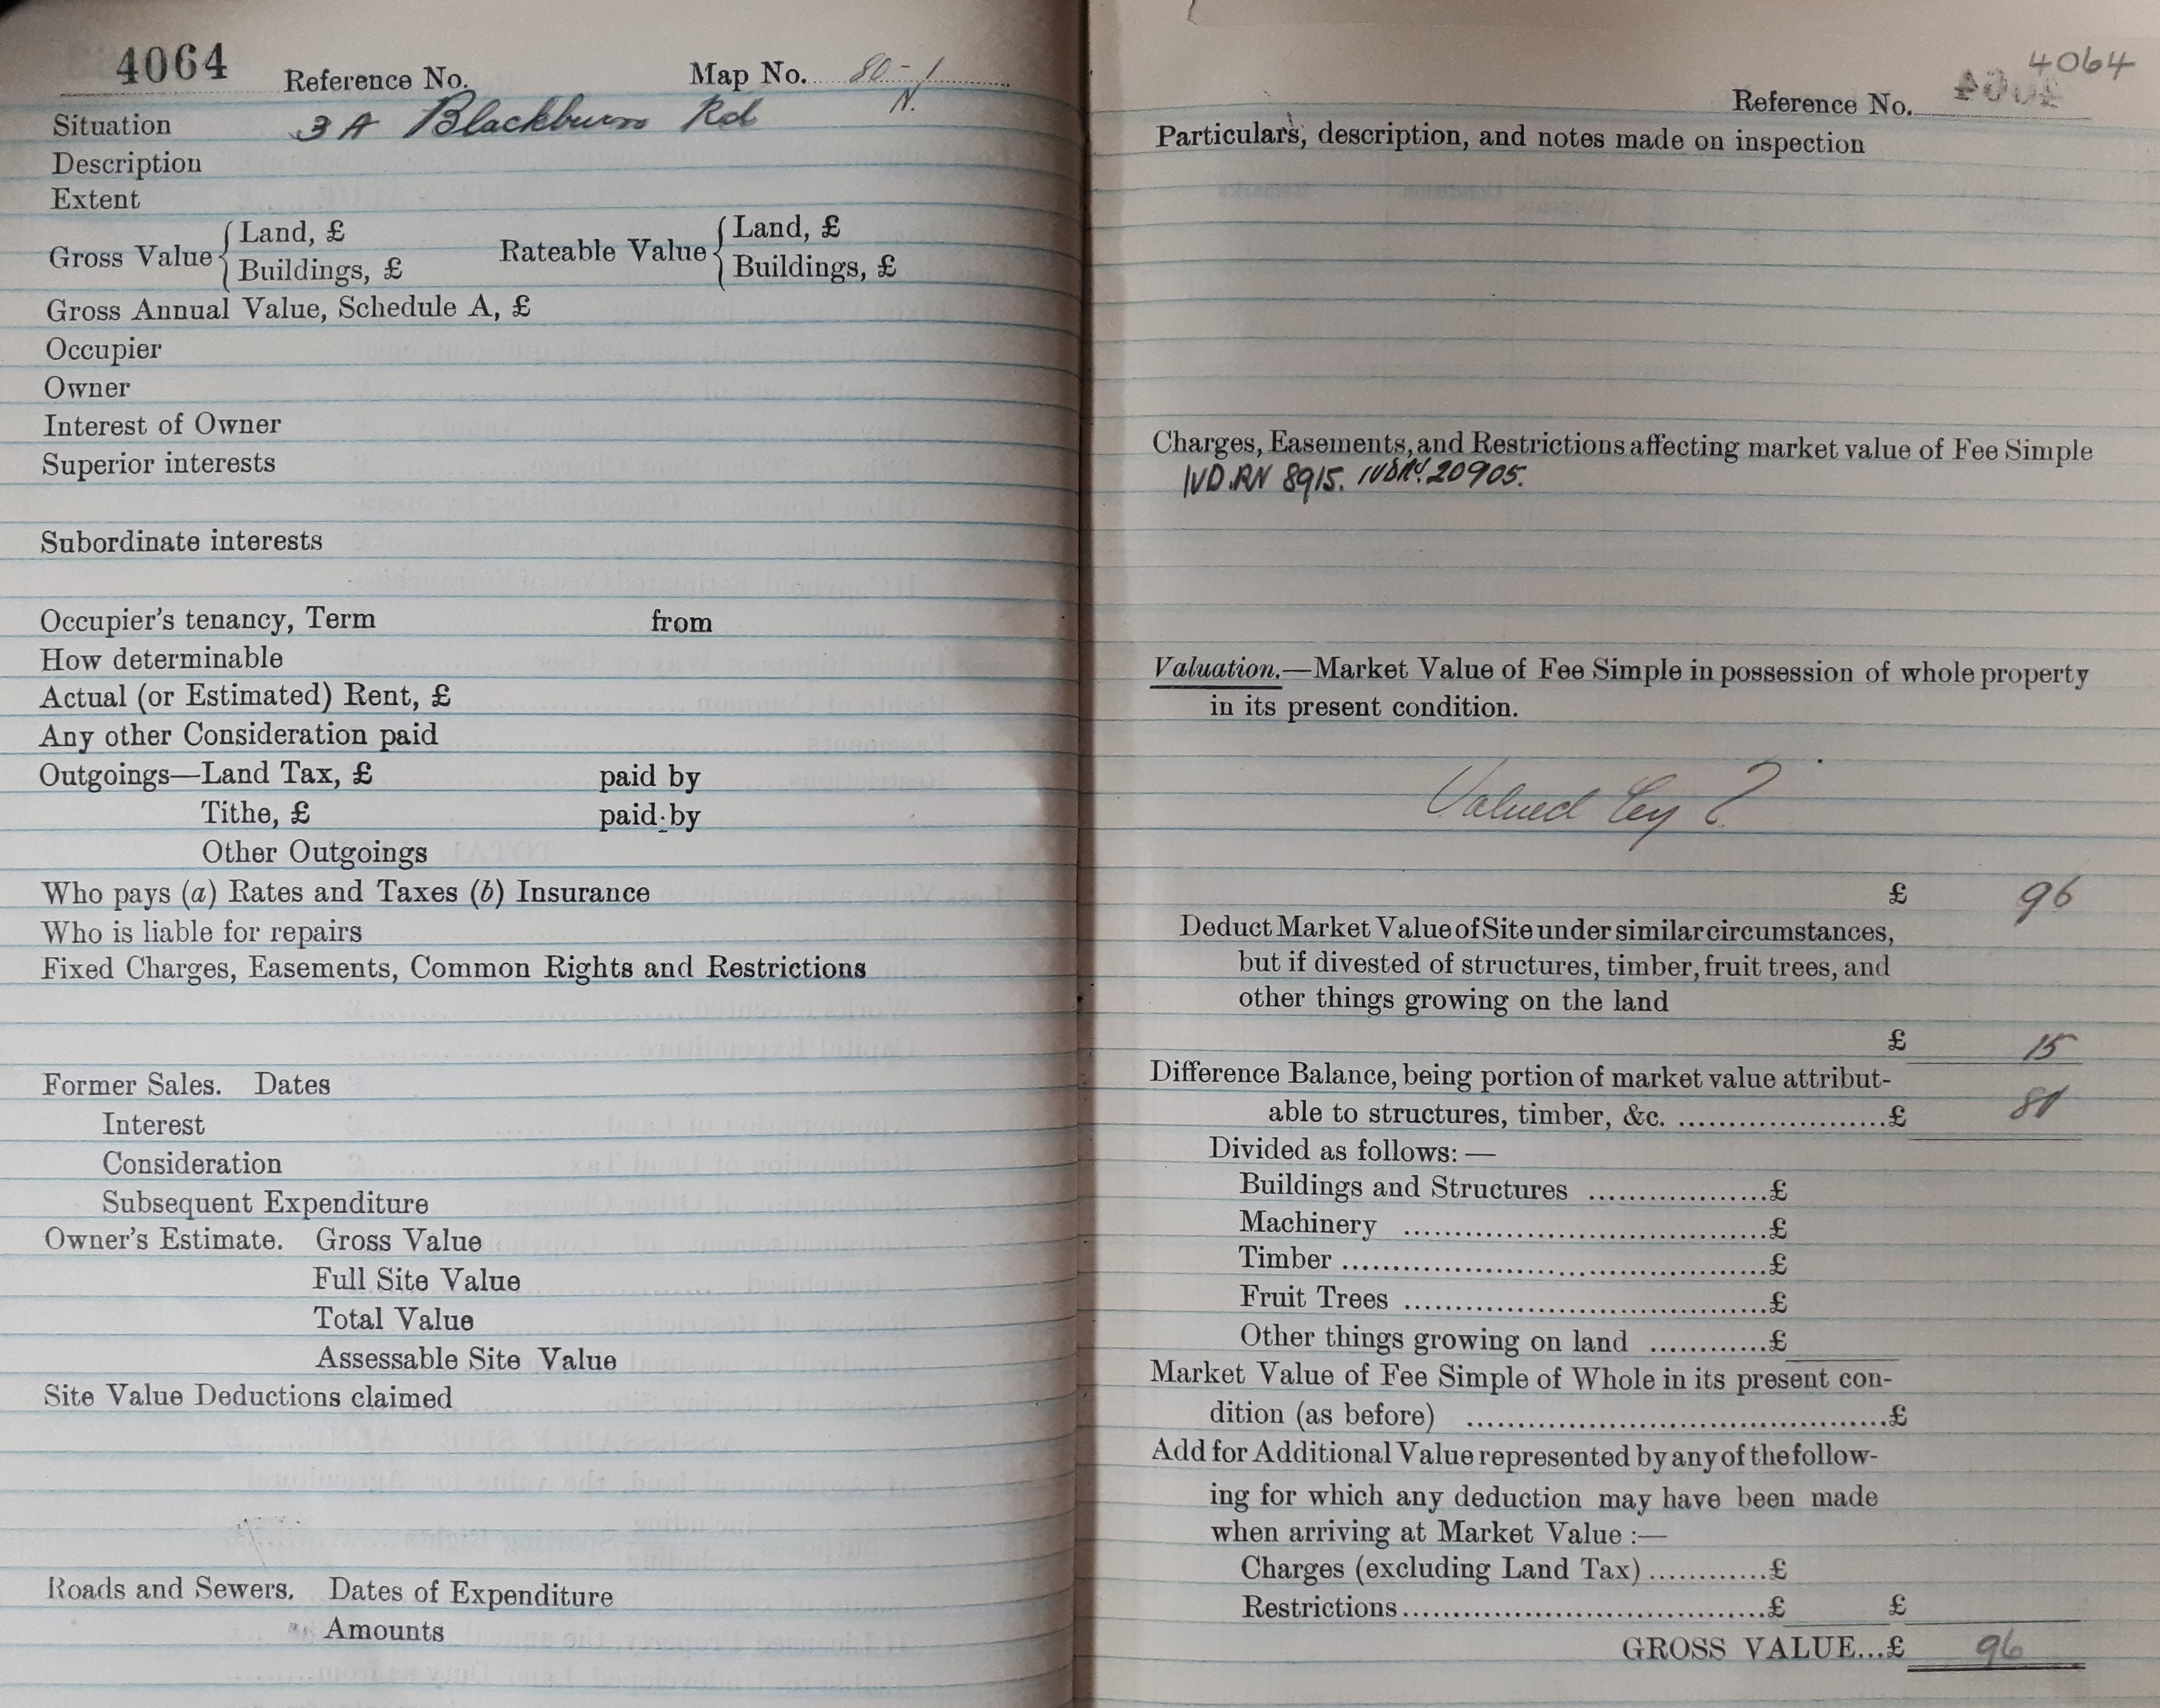 4064 Reference No. Map No. 80-1
N.
Situation 3A Blackburn Rd
Description
Extent
Gross Value { Land, £ Rateable Value { Land, £
Buildings, £ Buildings, £
Gross Annual Value, Schedule A, £
Occupier
Owner
Interest of Owner
Superior interests
Subordinate interests
Occupier's tenancy, Term from
How determinable
Actual (or Estimated) Rent, £
Any other Consideration paid
Outgoings—Land Tax, £ paid by
Tithe, £ paid by
Other Outgoings
Who pays (a) Rates and Taxes (b) Insurance
Who is liable for repairs
Fixed Charges, Easements, Common Rights and Restrictions
Former Sales. Dates
Interest
Consideration
Subsequent Expenditure
Owner's Estimate. Gross Value
Full Site Value
Total Value
Assessable Site Value
Site Value Deductions claimed
Roads and Sewers. Dates of Expenditure
Amounts
4064
Reference No.
Particulars, description, and notes made on inspection
Charges, Easements, and Restrictions affecting market value of Fee Simple
IVD.RN 8915. IVDRN. 20905.
Valuation.—Market Value of Fee Simple in possession of whole property
in its present condition.
Valued by ?
£ 96
Deduct Market Value of Site under similar circumstances,
but if divested of structures, timber, fruit trees, and
other things growing on the land
£ 15
Difference Balance, being portion of market value attribut-
able to structures, timber, &c. ....................£ 81
Divided as follows:—
Buildings and Structures ..................£
Machinery ....................................£
Timber ..........................................£
Fruit Trees ....................................£
Other things growing on land ............£
Market Value of Fee Simple of Whole in its present con-
dition (as before) ..........................................£
Add for Additional Value represented by any of the follow-
ing for which any deduction may have been made
when arriving at Market Value :—
Charges (excluding Land Tax)............£
Restrictions....................................£ £
GROSS VALUE...£ 96